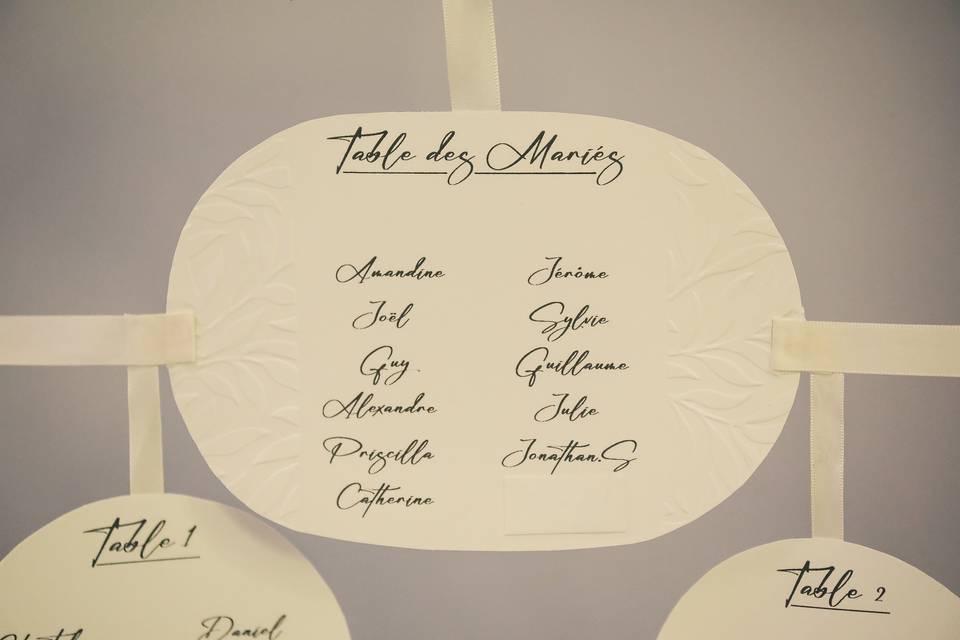 Table des Mariés
Amandine
Joël
Guy
Alexandre
Priscilla
Catherine
Jérôme
Sylvie
Guillaume
Julie
Jonathan.S
Table 1
Daniel
Table 2